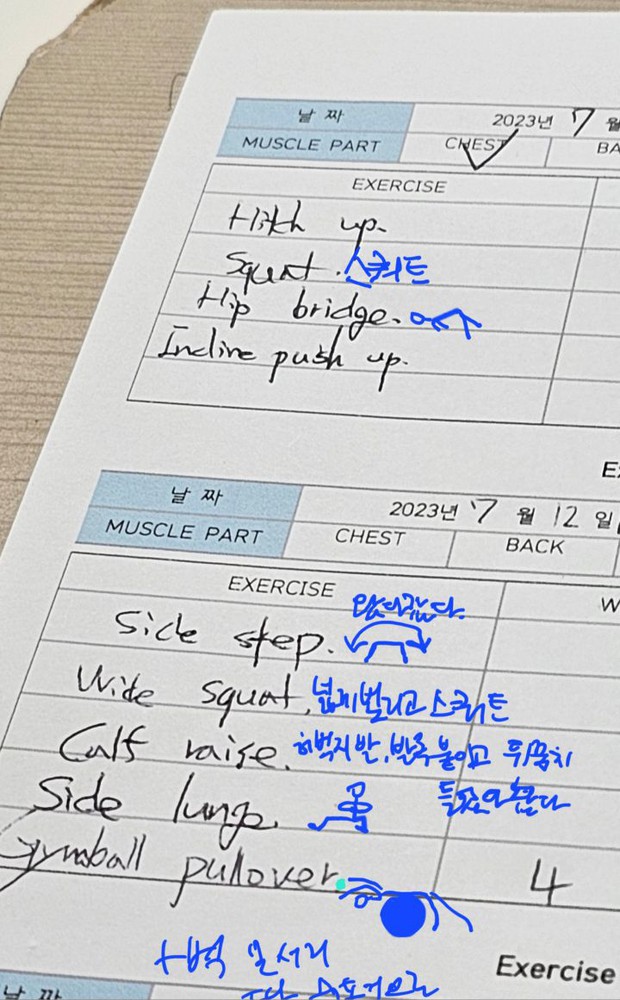 날 짜 2023년 7 월
MUSCLE PART CHEST BA
EXERCISE
Hitch up.
Squat. 스쿼트
Hip bridge.
Incline push up.
Ex
날 짜 2023년 7 월 12 일
MUSCLE PART CHEST BACK
EXERCISE W
왔다갔다.
Side step.
Wide squat, 넓게벌리고 스쿼트
Calf raise. 허벅지 발, 발목 붙이고 뒤꿈치
Side lunge.
Gymball pullover. 4
모서리
Exercise
날 짜